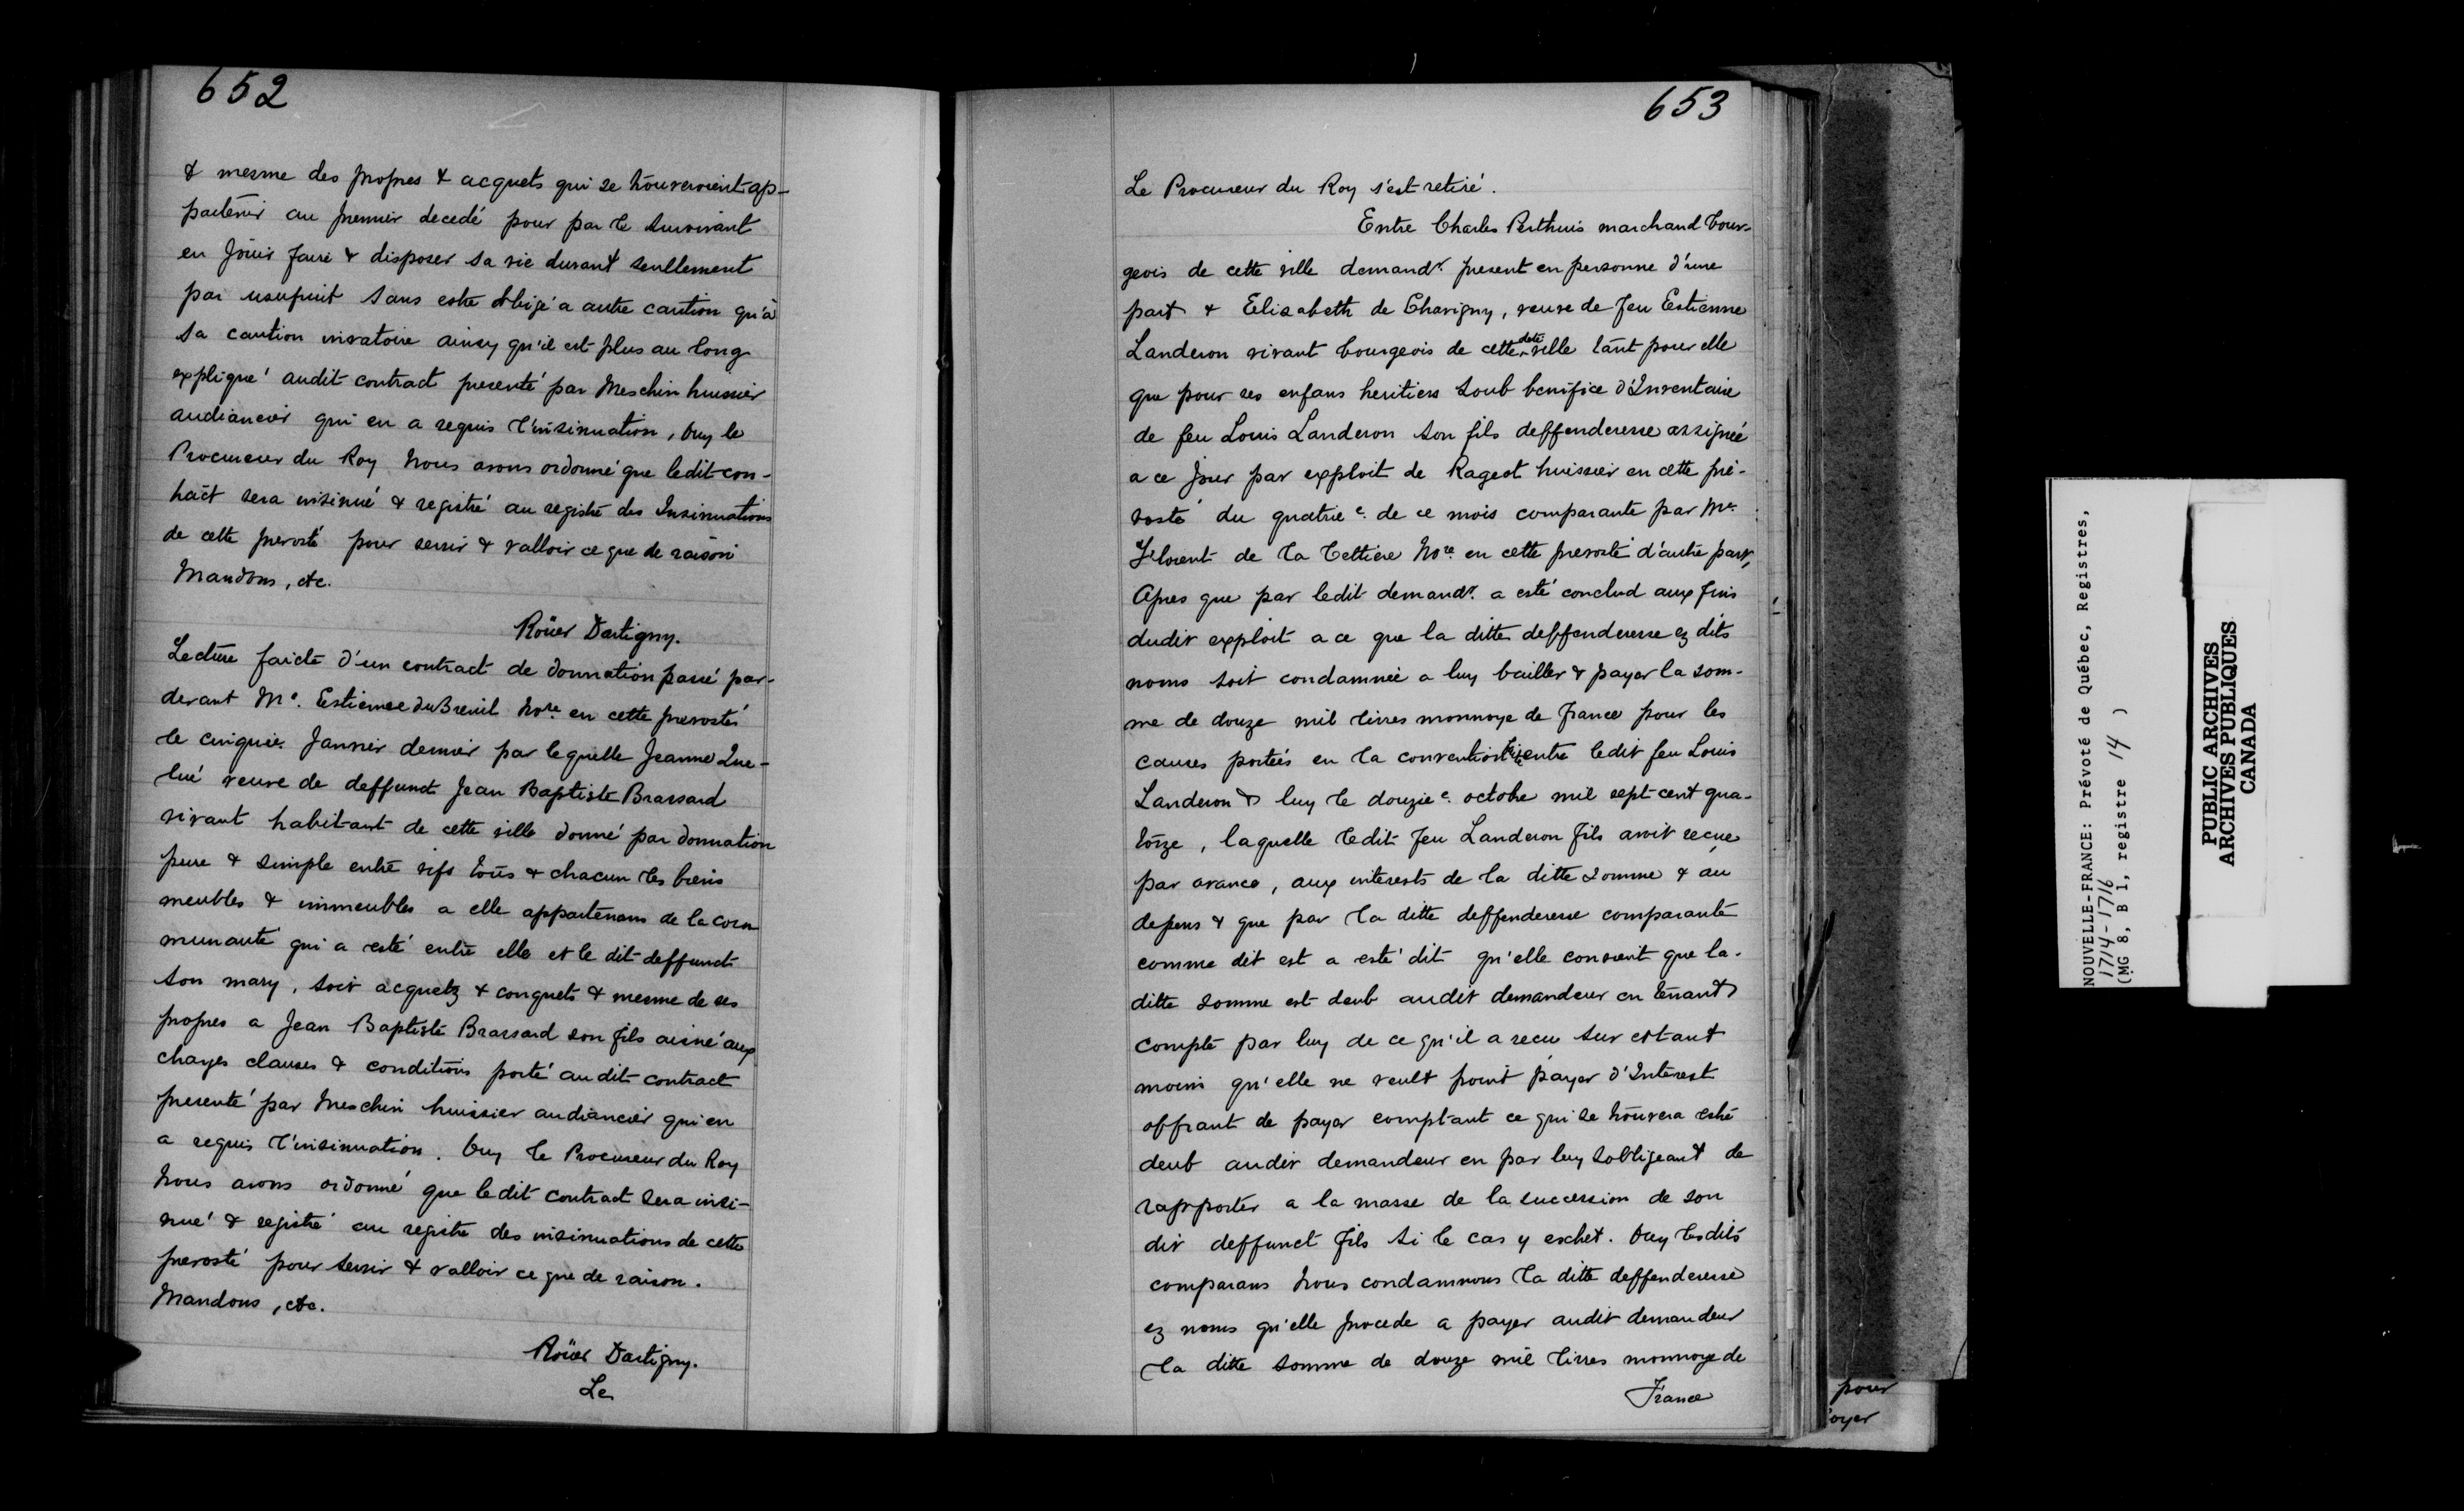 652
& mesme des propres & acquets qui se trouveroient ap-
partenir au premier decedé pour par le survivant
en Jouir faire & disposer sa vie durant seullement
par usufruit sans estre obligé a autre caution qu'à
sa caution iuratoire ainsy qu'il est plus au long
expliqué audit contract presenté par Meschin huissier
audiancier qui en a requis l'insinuation, Ouy le
Procureur du Roy Nous avons ordonné que ledit con-
tract sera insinué & registré au registre des Insinuations
de cette prevosté pour servir & valloir ce que de raison
Mandons, etc.
Roüer Dartigny.
Lecture faicte d'un contract de donnation passé par-
devant Me. Estienne duBreuil Nore. en cette prevosté
le cinquie. Janvier dernier par lequelle Jeanne Que-
lué veuve de deffunct Jean Baptiste Brassard
vivant habitant de cette ville donné par donnation
pure & simple entre vifs tous & chacun les biens
meubles & immeubles a elle appartenans de la com
munauté qui a esté entre elle et le dit deffunct
son mary, soit acquetz & conquets & mesme de ses
propres a Jean Baptiste Brassard son fils aisné aux
charges clauses & conditions porté au dit contract
presenté par Meschin huissier audiancier qui en
a requis l'insinuation. Ouy le Procureur du Roy
Nous avons ordonné que ledit contract sera insi-
nué & registré au registre des insinuations de cette
prevosté pour servir & valloir ce que de raison.
Mandons, etc.
Roüer Dartigny.
Le
653
Le Procureur du Roy s'est retiré.
Entre Charles Perthuis marchand bour-
geois de cette ville demandr. present en personne d'une
part & Elisabeth de Chavigny, veuve de feu Estienne
Landeron vivant bourgeois de cette dte ville tant pour elle
que pour ses enfans heritiers soub benifice d'Inventaire
de feu Louis Landeron son fils deffenderesse assignée
a ce jour par exploit de Rageot huissier en cette pre-
vosté du quatrie e. de ce mois comparante par Me.
Florent de la Cettiere Nore. en cette prevosté d'autre part,
Apres que par ledit demandr. a esté conclud aux fins
dudit exploit a ce que la ditte deffenderesse ez dits
noms soit condamnée a luy bailler & payer la som-
me de douze mil livres monnoye de france pour les
causes portées en la convention entre ledit feu Louis
Landeron & luy le douzie e. octobre mil sept cent qua-
torze, laquelle ledit feu Landeron fils avoit recue
par avance, aux interests de la ditte somme & au
depens & que par la ditte deffenderesse comparante
comme dit est a esté dit qu'elle convient que la-
ditte somme est deub audit demandeur en tenant
compte par luy de ce qu'il a recu sur estant
moins qu'elle ne veult point payer d'Interest
offrant de payer comptant ce qui se trouvera estre
deub audit demandeur en par luy sobligeant de
rapporter a la masse de la succession de son
dit deffunct fils si le cas y eschet. Ouy lesdits
comparans Nous condamnons la ditte deffenderesse
ez noms qu'elle procede a payer audit demandeur
la ditte somme de douze mil livres monnoye de
France
pour
oyer
NOUVELLE-FRANCE: Prévoté de Québec, Registres,
1714-1716
(MG 8, B 1, registre 14 )
PUBLIC ARCHIVES
ARCHIVES PUBLIQUES
CANADA